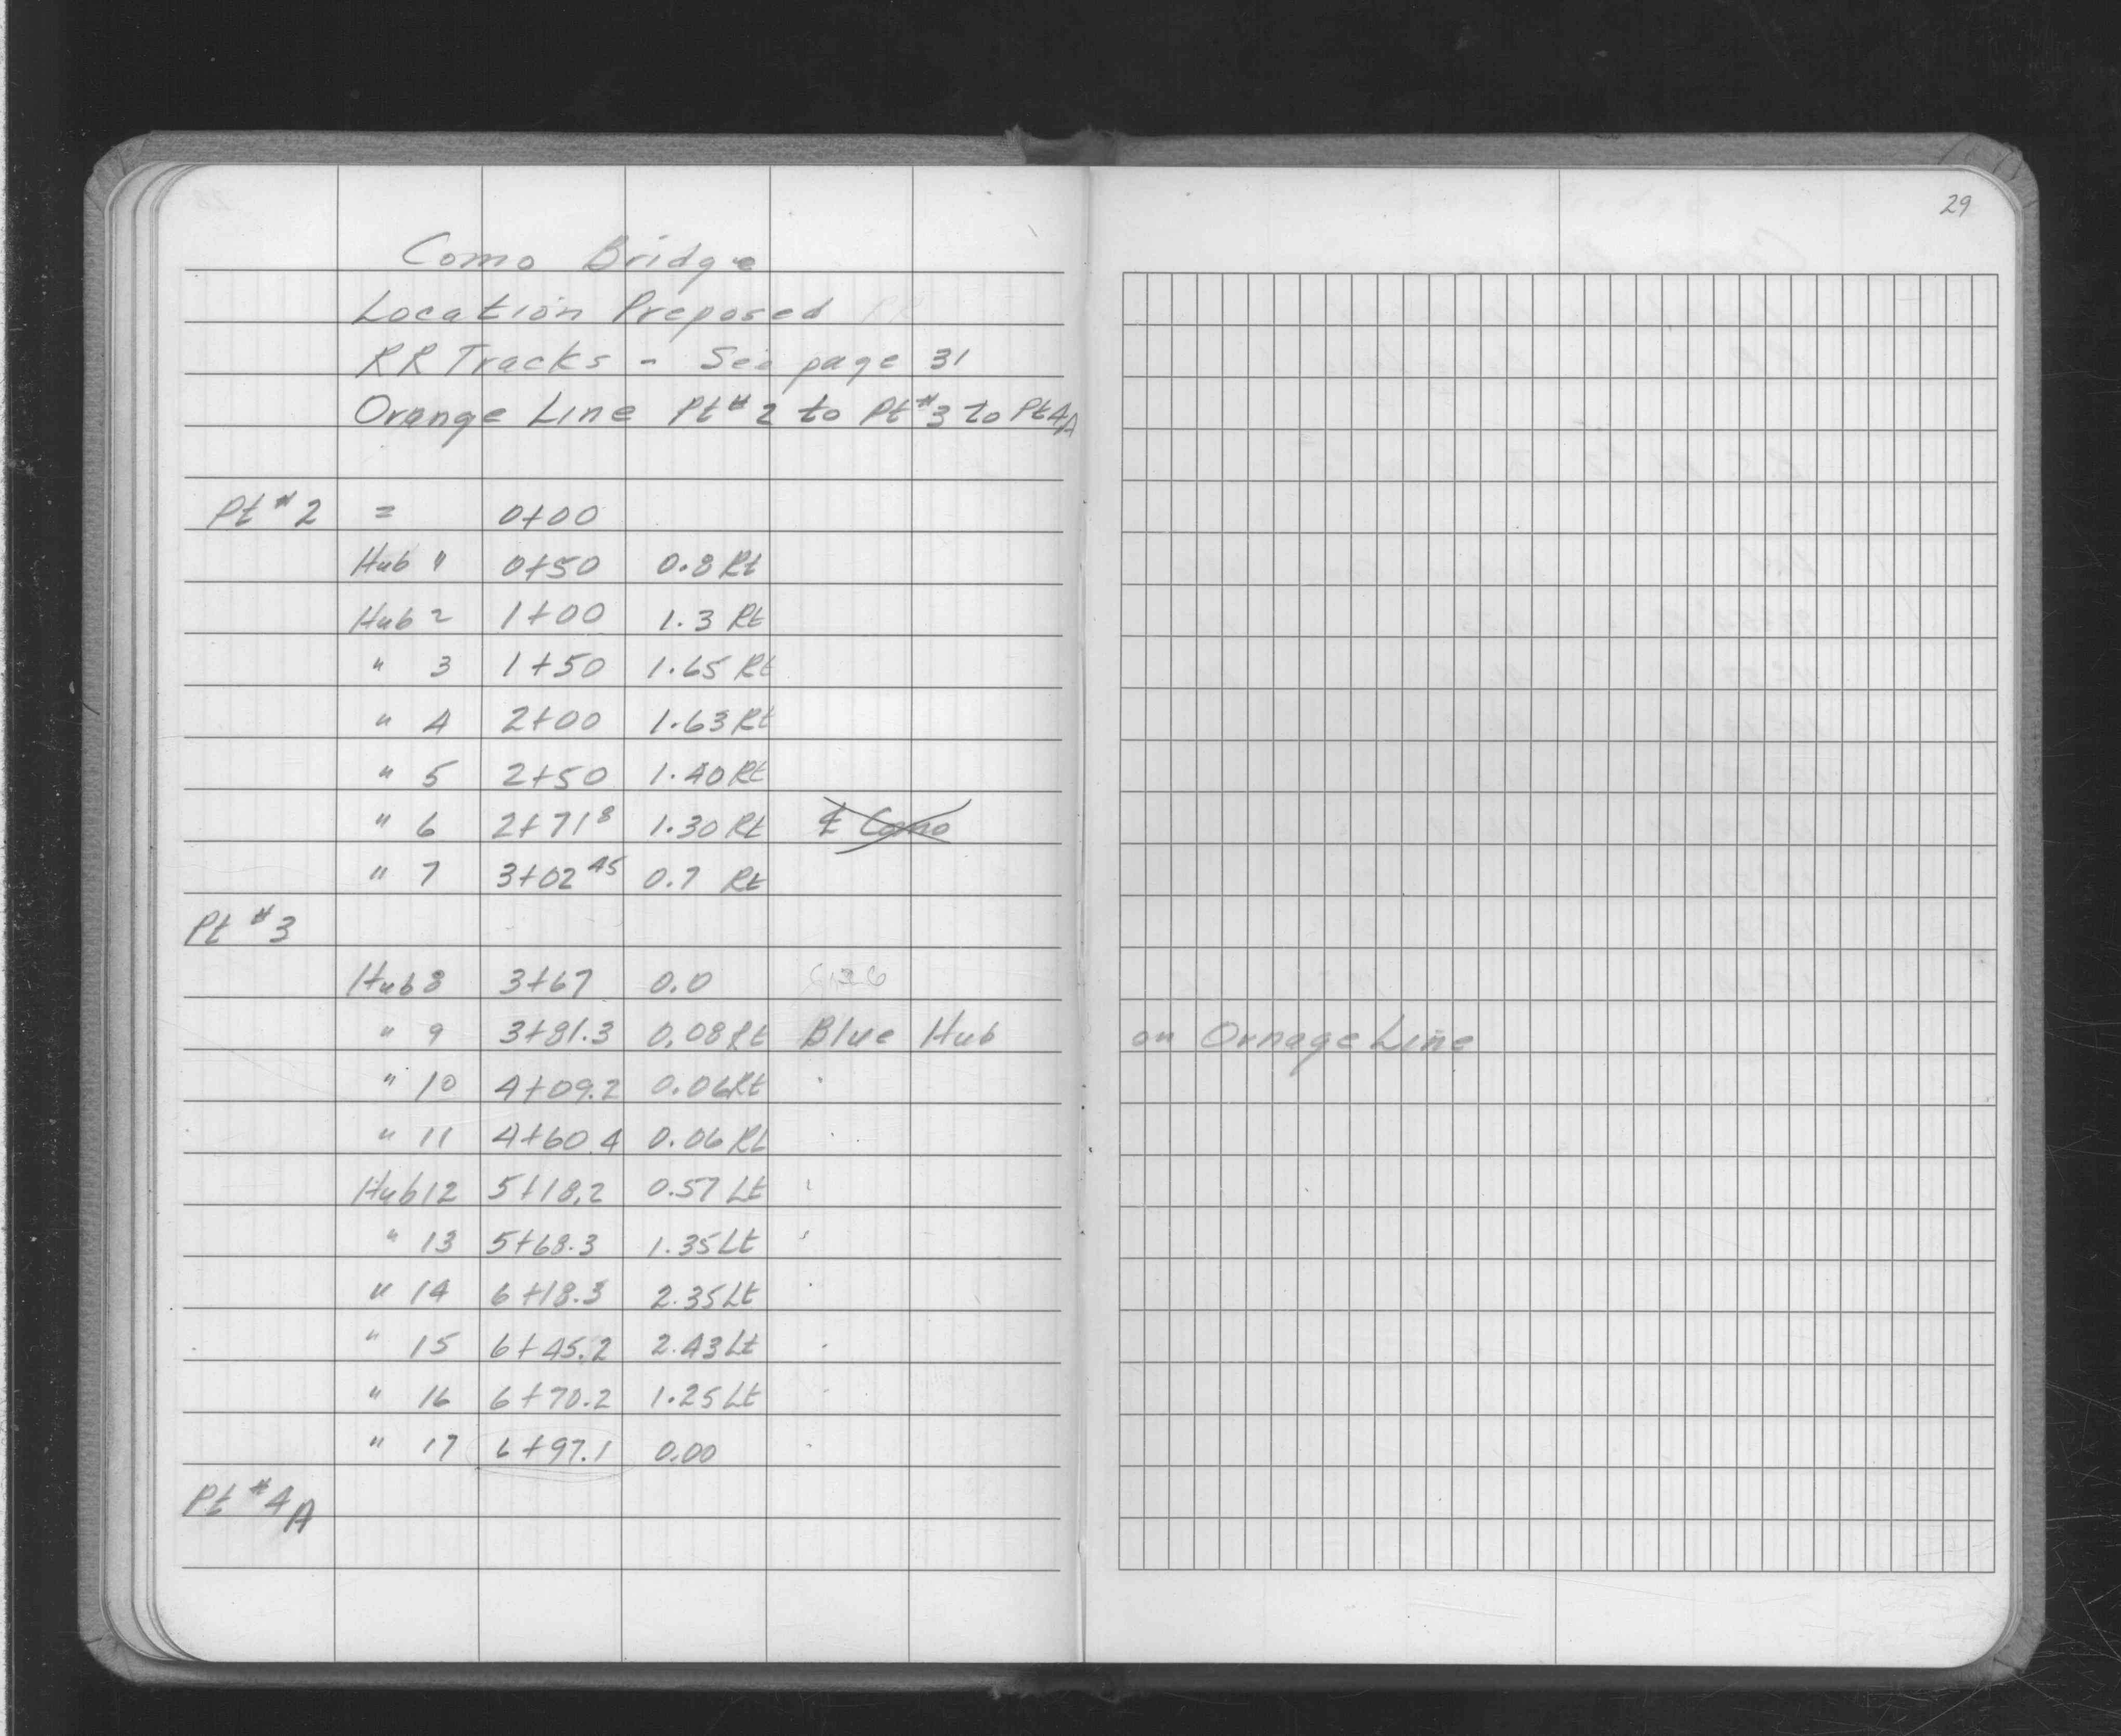 29
Como Bridge
Location Proposed
RR Tracks - See page 31
Orange Line Pt #2 to Pt #3 to Pt 4A
Pt #2 = 0+00
Hub " 0+50 0.8 Rt
Hub 2 1+00 1.3 Rt
" 3 1+50 1.65 Rt
" 4 2+00 1.63 Rt
" 5 2+50 1.40 Rt
" 6 2+71⁸ 1.30 Rt ℄ Como
" 7 3+02⁴⁵ 0.7 Rt
Pt #3
Hub 8 3+67 0.0
" 9 3+81.3 0.08 Rt Blue Hub on Ornage Line
" 10 4+09.2 0.06 Rt "
" 11 4+60.4 0.06 Rt "
Hub 12 5+18.2 0.57 Lt "
" 13 5+68.3 1.35 Lt "
" 14 6+18.3 2.35 Lt "
" 15 6+45.2 2.43 Lt "
" 16 6+70.2 1.25 Lt "
" 17 6+97.1 0.00 "
Pt #4A